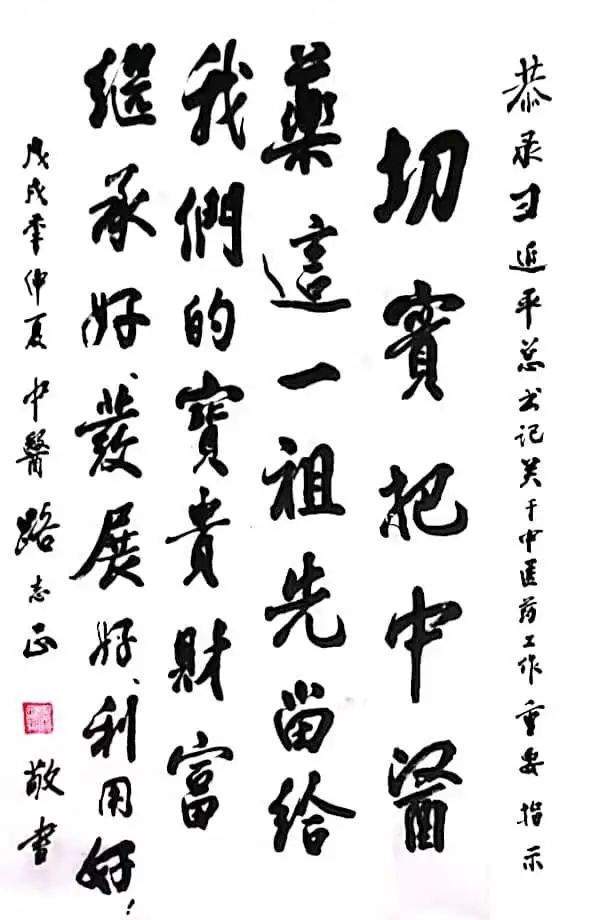 恭录习近平总书记关于中医药工作重要指示
切實把中醫
藥這一祖先留给
我們的寶貴財富
继承好、發展好、利用好！
戊戌年仲夏 中醫路志正 敬書